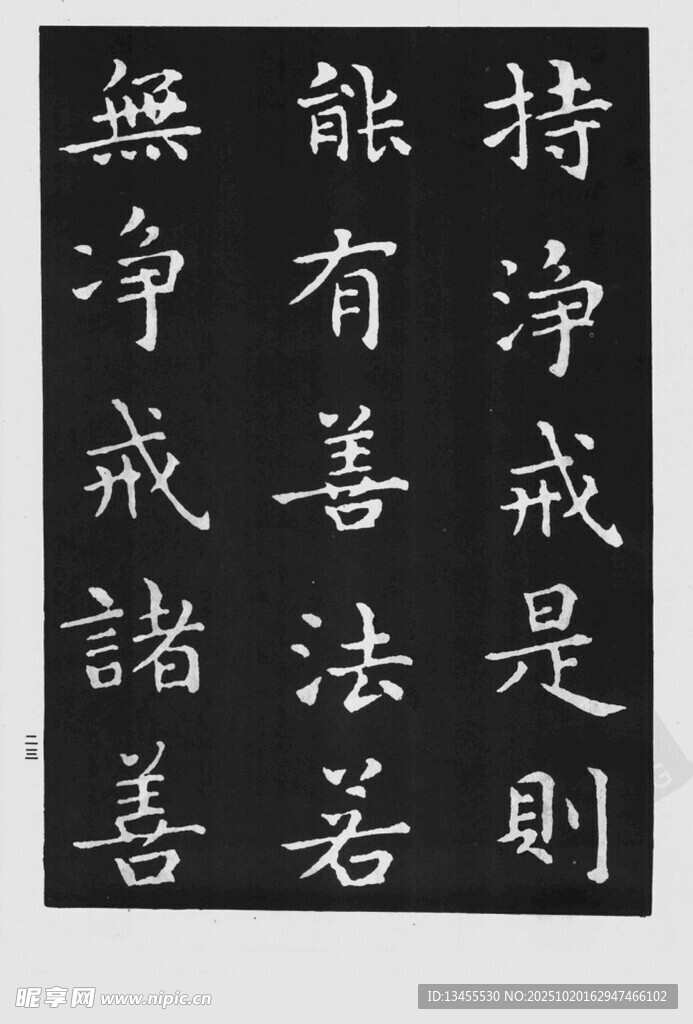 持淨戒是則
能有善法若
無净戒諸善
二三
昵享网 www.nipic.cn
ID:13455530 NO:20251020162947466102